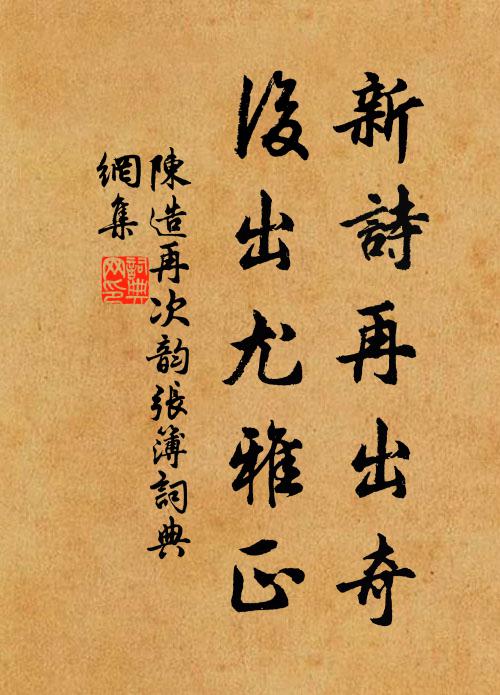 新詩再出奇
後出尤雅正
陳造再次韵張簿詞典
網集
詞典網印